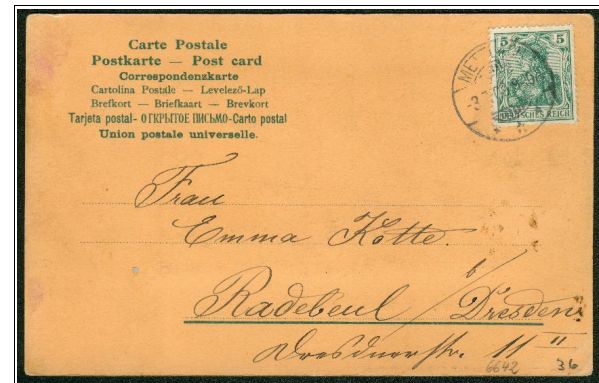 Carte Postale
Postkarte — Post card
Correspondenzkarte
Cartolina Postale — Levelező-Lap
Brefkort — Briefkaart — Brevkort
Tarjeta postal - ОТКРЫТОЕ ПИСЬМО - Carto postal
Union postale universelle.
5 5
DEUTSCHES REICH
Frau
Emma Kotte.
Radebeul b/ Dresden
Dresdnerstr. 11 II
6642 36